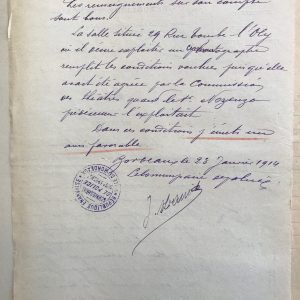 Les renseignements sur son compte
sont bons.
La salle située 29 Rue
où il désire exploiter un cinématographe
remplit les conditions voulues puisqu'elle
avait été agréée par la Commission
des théâtres quand le Sr
précédemment l'exploitait
Dans ces conditions j'émets un
avis favorable
Bordeaux le 23 Janvier 1914
Le Commissaire
RÉPUBLIQUE FRANÇAISE
POLICE